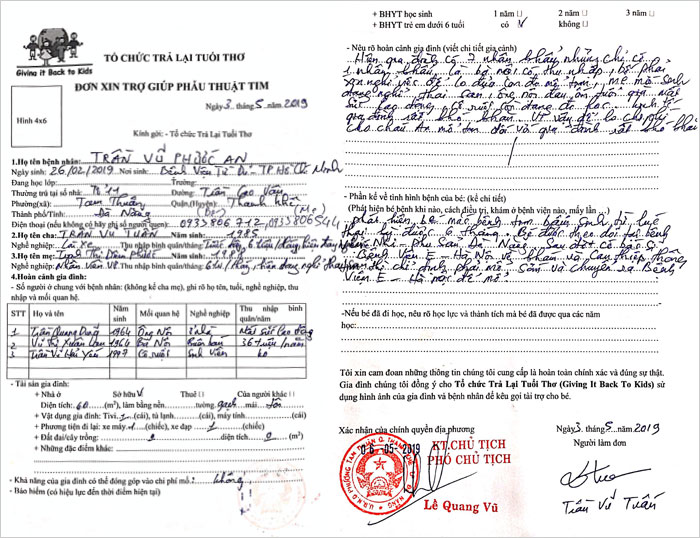 Giving it Back to Kids
TỔ CHỨC TRẢ LẠI TUỔI THƠ
ĐƠN XIN TRỢ GIÚP PHẪU THUẬT TIM
Ngày 3 tháng 5 năm 2019
Hình 4x6
Kính gởi: - Tổ chức Trả Lại Tuổi Thơ
1.Họ tên bệnh nhân: TRẦN VŨ PHƯỚC AN
Ngày sinh: 26/02/2019 Nơi sinh: Bệnh Viện Từ Dũ TP Hồ Chí Minh
Đang học lớp: Trường:
Thường trú tại số nhà: Đường: Trần Cao Vân
Phường(xã): Tam Thuận Quận,(Huyện): Thanh Khê
Thành phố/Tỉnh: Đà Nẵng (Bố) (Mẹ)
Điện thoại (nếu không có hãy ghi số người quen): 0933806712 - 0933806544
2.Họ tên cha: TRẦN VŨ TUẤN 1985
Nghề nghiệp: Lái xe Thu nhập bình quân/tháng:
3.Họ tên mẹ: Thị Diễm Phước
Nghề nghiệp: Nhân Viên Thu nhập bình quân/tháng: 6tr/tháng, hiện đang nghỉ
4.Hoàn cảnh gia đình:
- Số người ở chung với bệnh nhân: (không kể cha mẹ), ghi rõ họ tên, tuổi, nghề nghiệp, thu nhập và mối quan hệ.
STT Họ và tên Năm sinh Mối quan hệ Nghề nghiệp Thu nhập bình quân/năm
1 Trần Quang Dũng 1964 Ông Nội ở nhà Mất sức lao động
2 Vũ Thị Xuân Lan 1964 Bà Nội Buôn bán 36 triệu/năm
3 Trần Vũ Hải Yến 1997 Cô ruột Sinh Viên ko
- Tài sản gia đình:
+ Nhà ở Sở hữu V Thuê Của người khác
Diện tích: 60 (m²), làm bằng nền tường gạch mái tôn
+ Vật dụng gia đình: Tivi 1 (cái), tủ lạnh (cái), máy tính (cái)
+ Phương tiện đi lại: xe máy 1 (chiếc), xe đạp 1 (chiếc)
+ Đất đai/cây trồng: 0 diện tích 0 (m²)
+ Những đặc điểm khác:
- Khả năng của gia đình có thể đóng góp vào chi phí mổ: không
- Bảo hiểm (có hiệu lực đến thời điểm hiện tại)
+ BHYT học sinh 1 năm 2 năm 3 năm
+ BHYT trẻ em dưới 6 tuổi có V không
- Nêu rõ hoàn cảnh gia đình (viết chi tiết gia cảnh)
Hiện gia đình có 7 nhân khẩu nhưng chỉ có
1 nhân khẩu là bà nội có thu nhập, bố phải
xin nghỉ việc để lo đưa con đi mổ tim, mẹ mới sinh
đang nghỉ thai sản, ông nội đau ốm mất
sức lao động, cô ruột còn đang đi học
gia đình rất khó khăn. Vì vậy để lo chi phí
cho cháu An mổ tim đối với gia đình rất khó khăn
- Phần kể về tình hình của bé: (kể chi tiết)
(Phát hiện bệnh khi nào, cách điều trị, khám ở bệnh viện nào, mấy lần ...)
Phát hiện bé mắc bệnh tim bẩm sinh từ lúc
thai được 6 tháng, bé được theo dõi tại bệnh
Nhi - Phụ Sản Đà Nẵng. Sau đó có bác sĩ
Bệnh Viện E - Hà Nội về khám và can thiệp thông
tim thì chỉ định phải mổ sớm và chuyển ra Bệnh
Viện E - Hà Nội để mổ.
-Nếu bé đã đi học, nêu rõ học lực và thành tích mà bé đã được qua các năm
học:
Tôi xin cam đoan những thông tin chúng tôi cung cấp là hoàn toàn chính xác và đúng sự thật.
Gia đình chúng tôi đồng ý cho Tổ chức Trả Lại Tuổi Thơ (Giving It Back To Kids) sử
dụng hình ảnh của gia đình và bệnh nhân để kêu gọi tài trợ cho bé.
Xác nhận của chính quyền địa phương
Ngày 3 tháng 5 năm 2019
Người làm đơn
06-05-2019
KT.CHỦ TỊCH
PHÓ CHỦ TỊCH
Lê Quang Vũ
Trần Vũ Tuấn